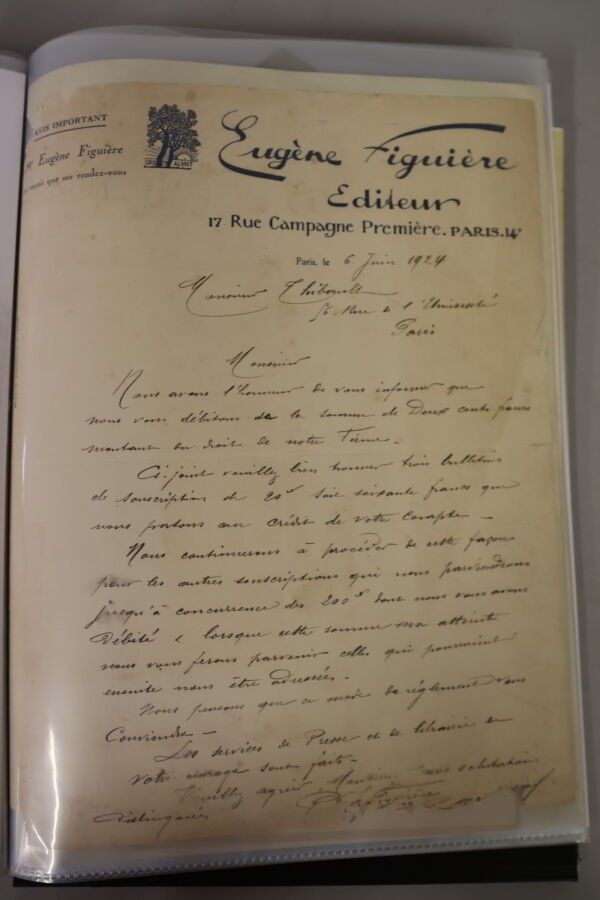 AVIS IMPORTANT
Eugène Figuière
que sur rendez-vous
Eugène Figuière
Editeur
17 Rue Campagne Première. PARIS. 14e
Paris, le 6 Juin 1924
Monsieur Thibault
Rue de l'Université
Paris
Monsieur
Nous avons l'honneur de vous informer que
nous vous débitons de la somme de Deux cents francs
montant du droit de notre Firme.
Ci-joint veuillez bien trouver trois bulletins
de souscription de 20f soit soixante francs que
nous portons au crédit de votre compte —
Nous continuerons à procéder de cette façon
pour les autres souscriptions qui nous parviendrons
jusqu'à concurrence des 200f dont nous vous avons
débité & lorsque cette somme sera atteinte
nous vous ferons parvenir celles qui pourraient
ensuite nous être adressées.
Nous pensons que ce mode de réglement vous
Conviendra —
Les services de Presse et de librairie de
votre ouvrage sont faits.
Veuillez agréer Monsieur nos salutations
Distinguées
Figuière